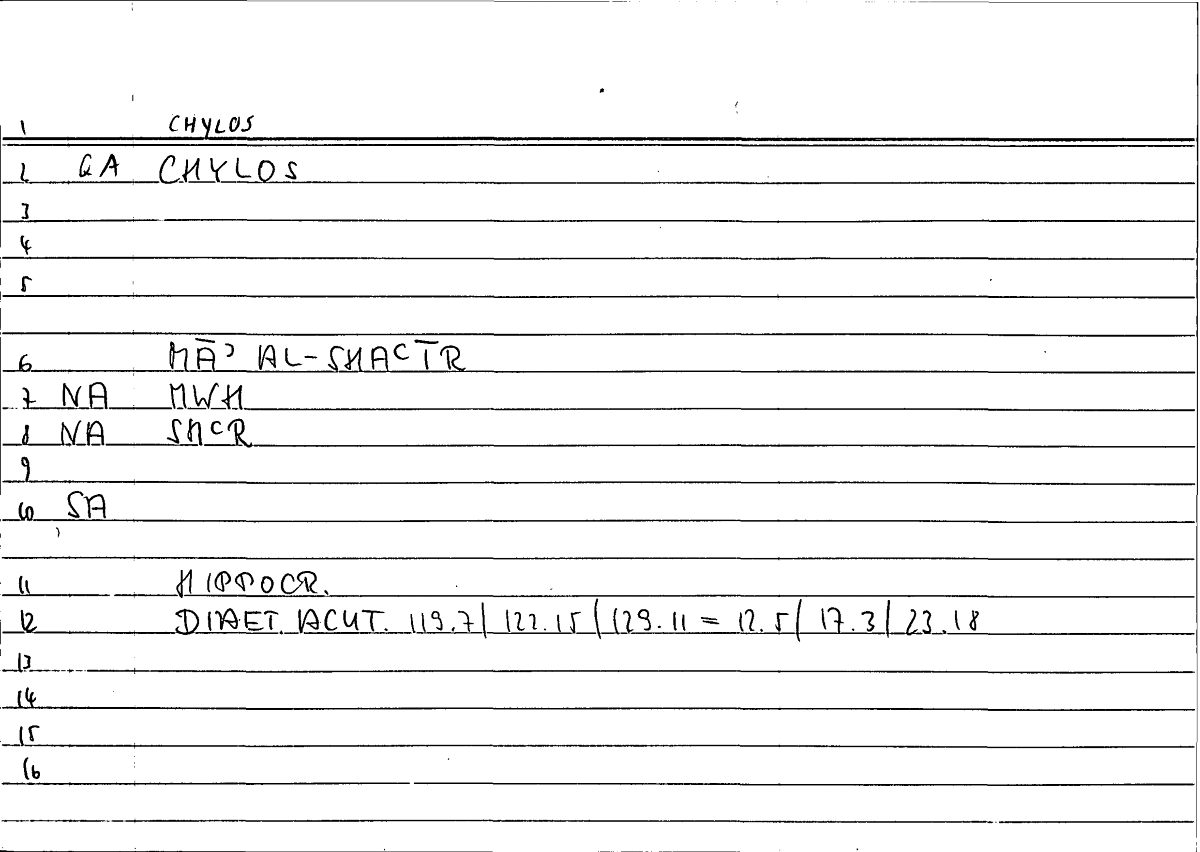 1 CHYLOS
2 GA CHYLOS
3
4
5
6 MĀʾ AL-SHAʿĪR
7 NA MWH
8 NA SHʿR
9
10 SA
11 HIPPOCR.
12 DIAET. ACUT. 119.7 | 122.15 | 129.11 = 12.5 | 17.3 | 23.18
13
14
15
16